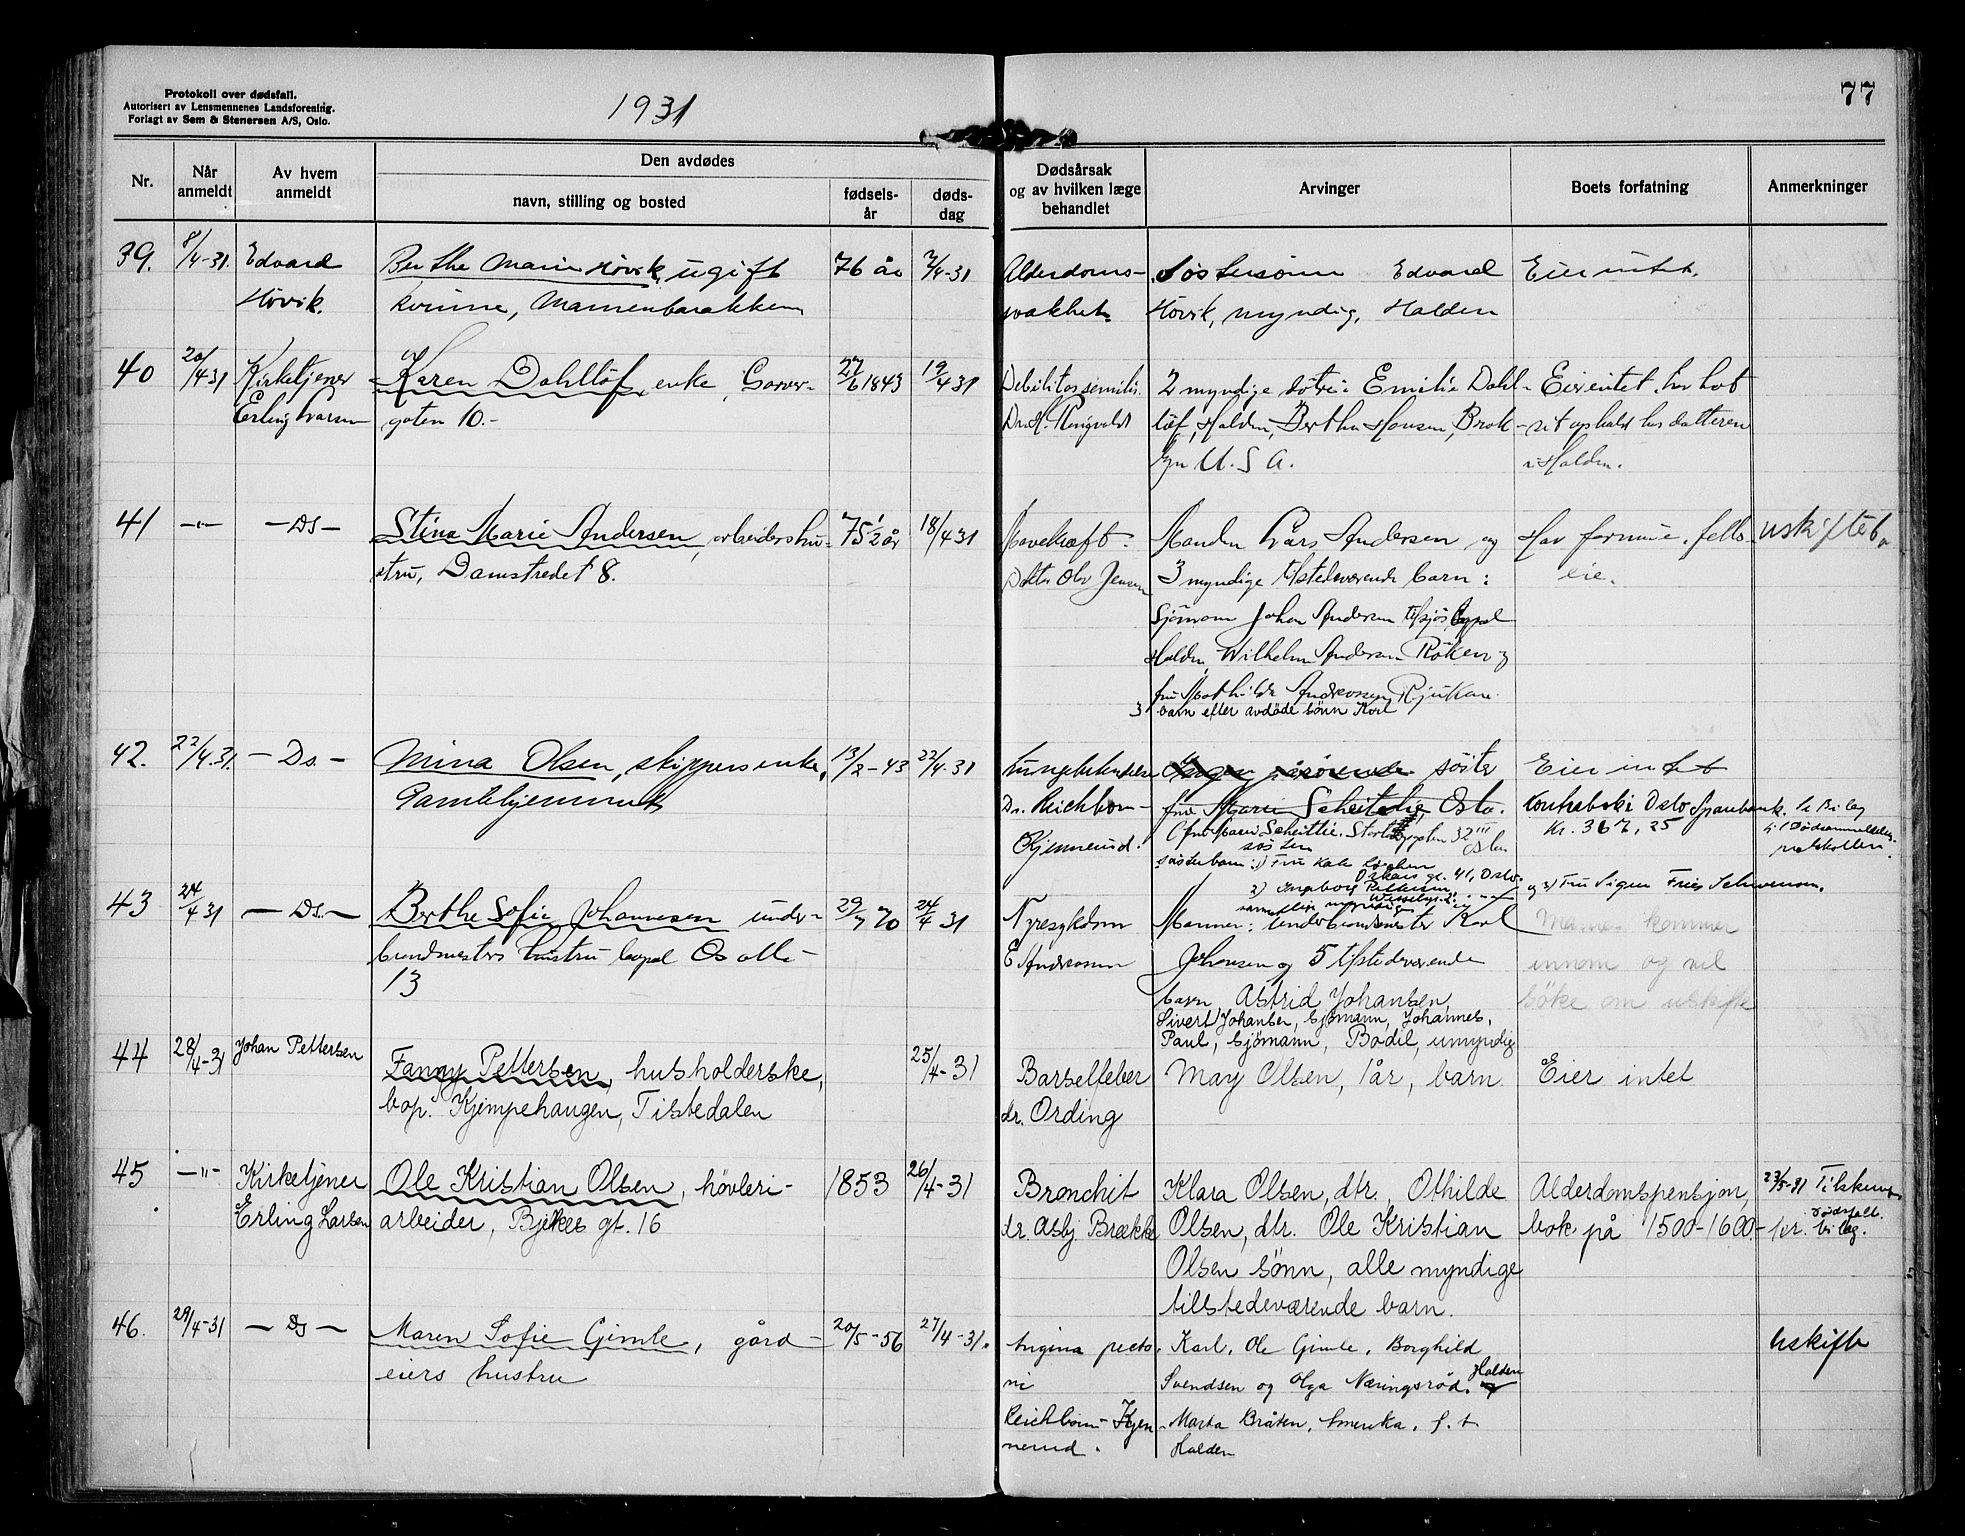 Protokoll over dødsfall.
Autorisert av Lensmennenes Landsforening.
Forlagt av Sem & Stenersen A/S, Oslo.
1931
77
Nr.
Når anmeldt
Av hvem anmeldt
Den avdødes
navn, stilling og bosted
fødsels-år
døds-dag
Dødsårsak og av hvilken læge behandlet
Arvinger
Boets forfatning
Anmerkninger
39. 8/4-31. Edvard Berthe Marie Hövik, ugift 76 år 7/4-31 Alderdoms- Söstersönn Edvard Eier intet.
Hövik. kvinne, Mannenbarakken svakhet. Hövik, myndig, Halden
40 20/4 31 Kirketjener Karen Dahllöf, enke, Garver- 27/6 1843 19/4 31 Debilitas senilis. 2 myndige dötre: Emilie Dahl- Eier intet, har hat
Erling Larsen gaten 10.- Dr. H. Ringvold löf, Halden, Berthe Hansen, Brok- sit ophold hos datteren
lyn U.S.A. i Halden.
41 -"- -Ds- Stina Marie Andersen, arbeidershu- 75 1/2 år 18/4 31 Mavekræft. Manden Lars Andersen og Hav formue, felles- uskiftet bo
stru, Damstredet 8. Doktor Olav Jensen 3 myndige tilstedeværende barn: eie.
Sjömann Johan Andersen tilsjös bopel
Halden, Wilhelm Andersen Röken og
fru Mathilde Andersen, Rjukan.
3 barn efter avdöde sönn Karl
42. 22/4.31. -Ds.- Mina Olsen, skippersenke, 13/2-43 22/4-31 Lungebetendelse söster Eier intet
Gamlehjemmet Dr. Reichborn- fru Marie Scheitlie Oslo. Kontrabok i Oslo Sparebank. Se Bilag
Kjennerud. (fru Marie Scheitlie. 32 III Oslo Kr. 367,25 til Dödsanmeldelsesprotokollen.
söster
sösterbarn: 1) Fru Oskars gt. 41, Oslo.
2) Ingeborg Pettersen, og 3) Fru Signe Friis
samtlige myndige
43 24/4 31 -Ds.- Berthe Sofie Johannesen under- 29/7 70 24/4 31 Nyresykdom Mannen: underbrandmester Karl Mannen kommer
brandmesters hustru bopel Os alle- E Andresen Johansen og 5 tilstedeværende innom og vil
13 barn, Astrid Johansen, söke om uskifte
Sivert Johansen, sjömann, Johannes,
Paul, sjömann, Bodil, umyndig
44 28/4-31 Johan Pettersen Fanny Pettersen, husholderske, 25/4-31 Barselfeber May Olsen, 1 år, barn Eier intet
bop. Kjempehaugen, Tistedalen dr. Ording
45 -"- Kirketjener Ole Kristian Olsen, hövleri- 1853 26/4-31 Bronchit Klara Olsen, dtr., Othilde Alderdomspensjon, 23/5-31 Tilskuds
Erling Larsen arbeider, Bjelkes gt. 16 dr. Asbj. Brække Olsen, dtr. Ole Kristian bok på 1500-1600- kr. dödsfall. bilag.
Olsen sönn, alle myndige
tilstedeværende barn.
46. 29/4-31 -Ds- Maren Sofie Gimle, gård- 20/5-56 27/4-31. Angina pecto- Karl, Ole Gimle, Borghild Uskifte
eiers hustru ris Svendsen og Olga Næringsröd. Halden
Reichborn-Kjen- Marta Bråten, Amerika, f. t.
nerud. Halden